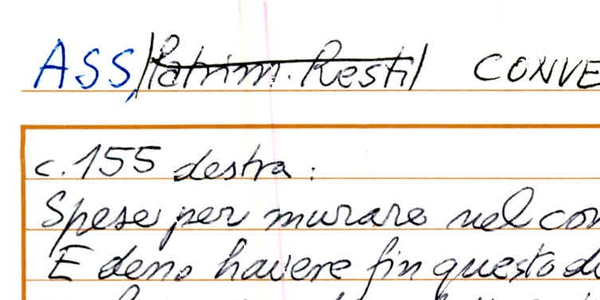 ASS, Patrim. Resti CONVE
c. 155 destra:
Spese per murare nel con
E deno havere fin questo d